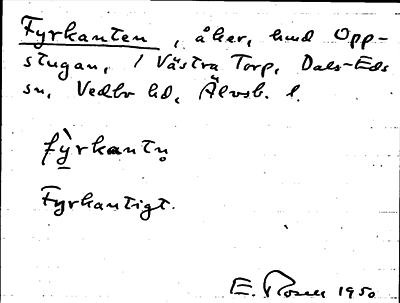 Fyrkanten, åker, hmd Opp-
stugan, / Västra Torp, Dals-Eds
sn, Vedbo hd, Älvsb. l.
fỳrkantn̥
Fyrkantigt.
E. Rosell 1950